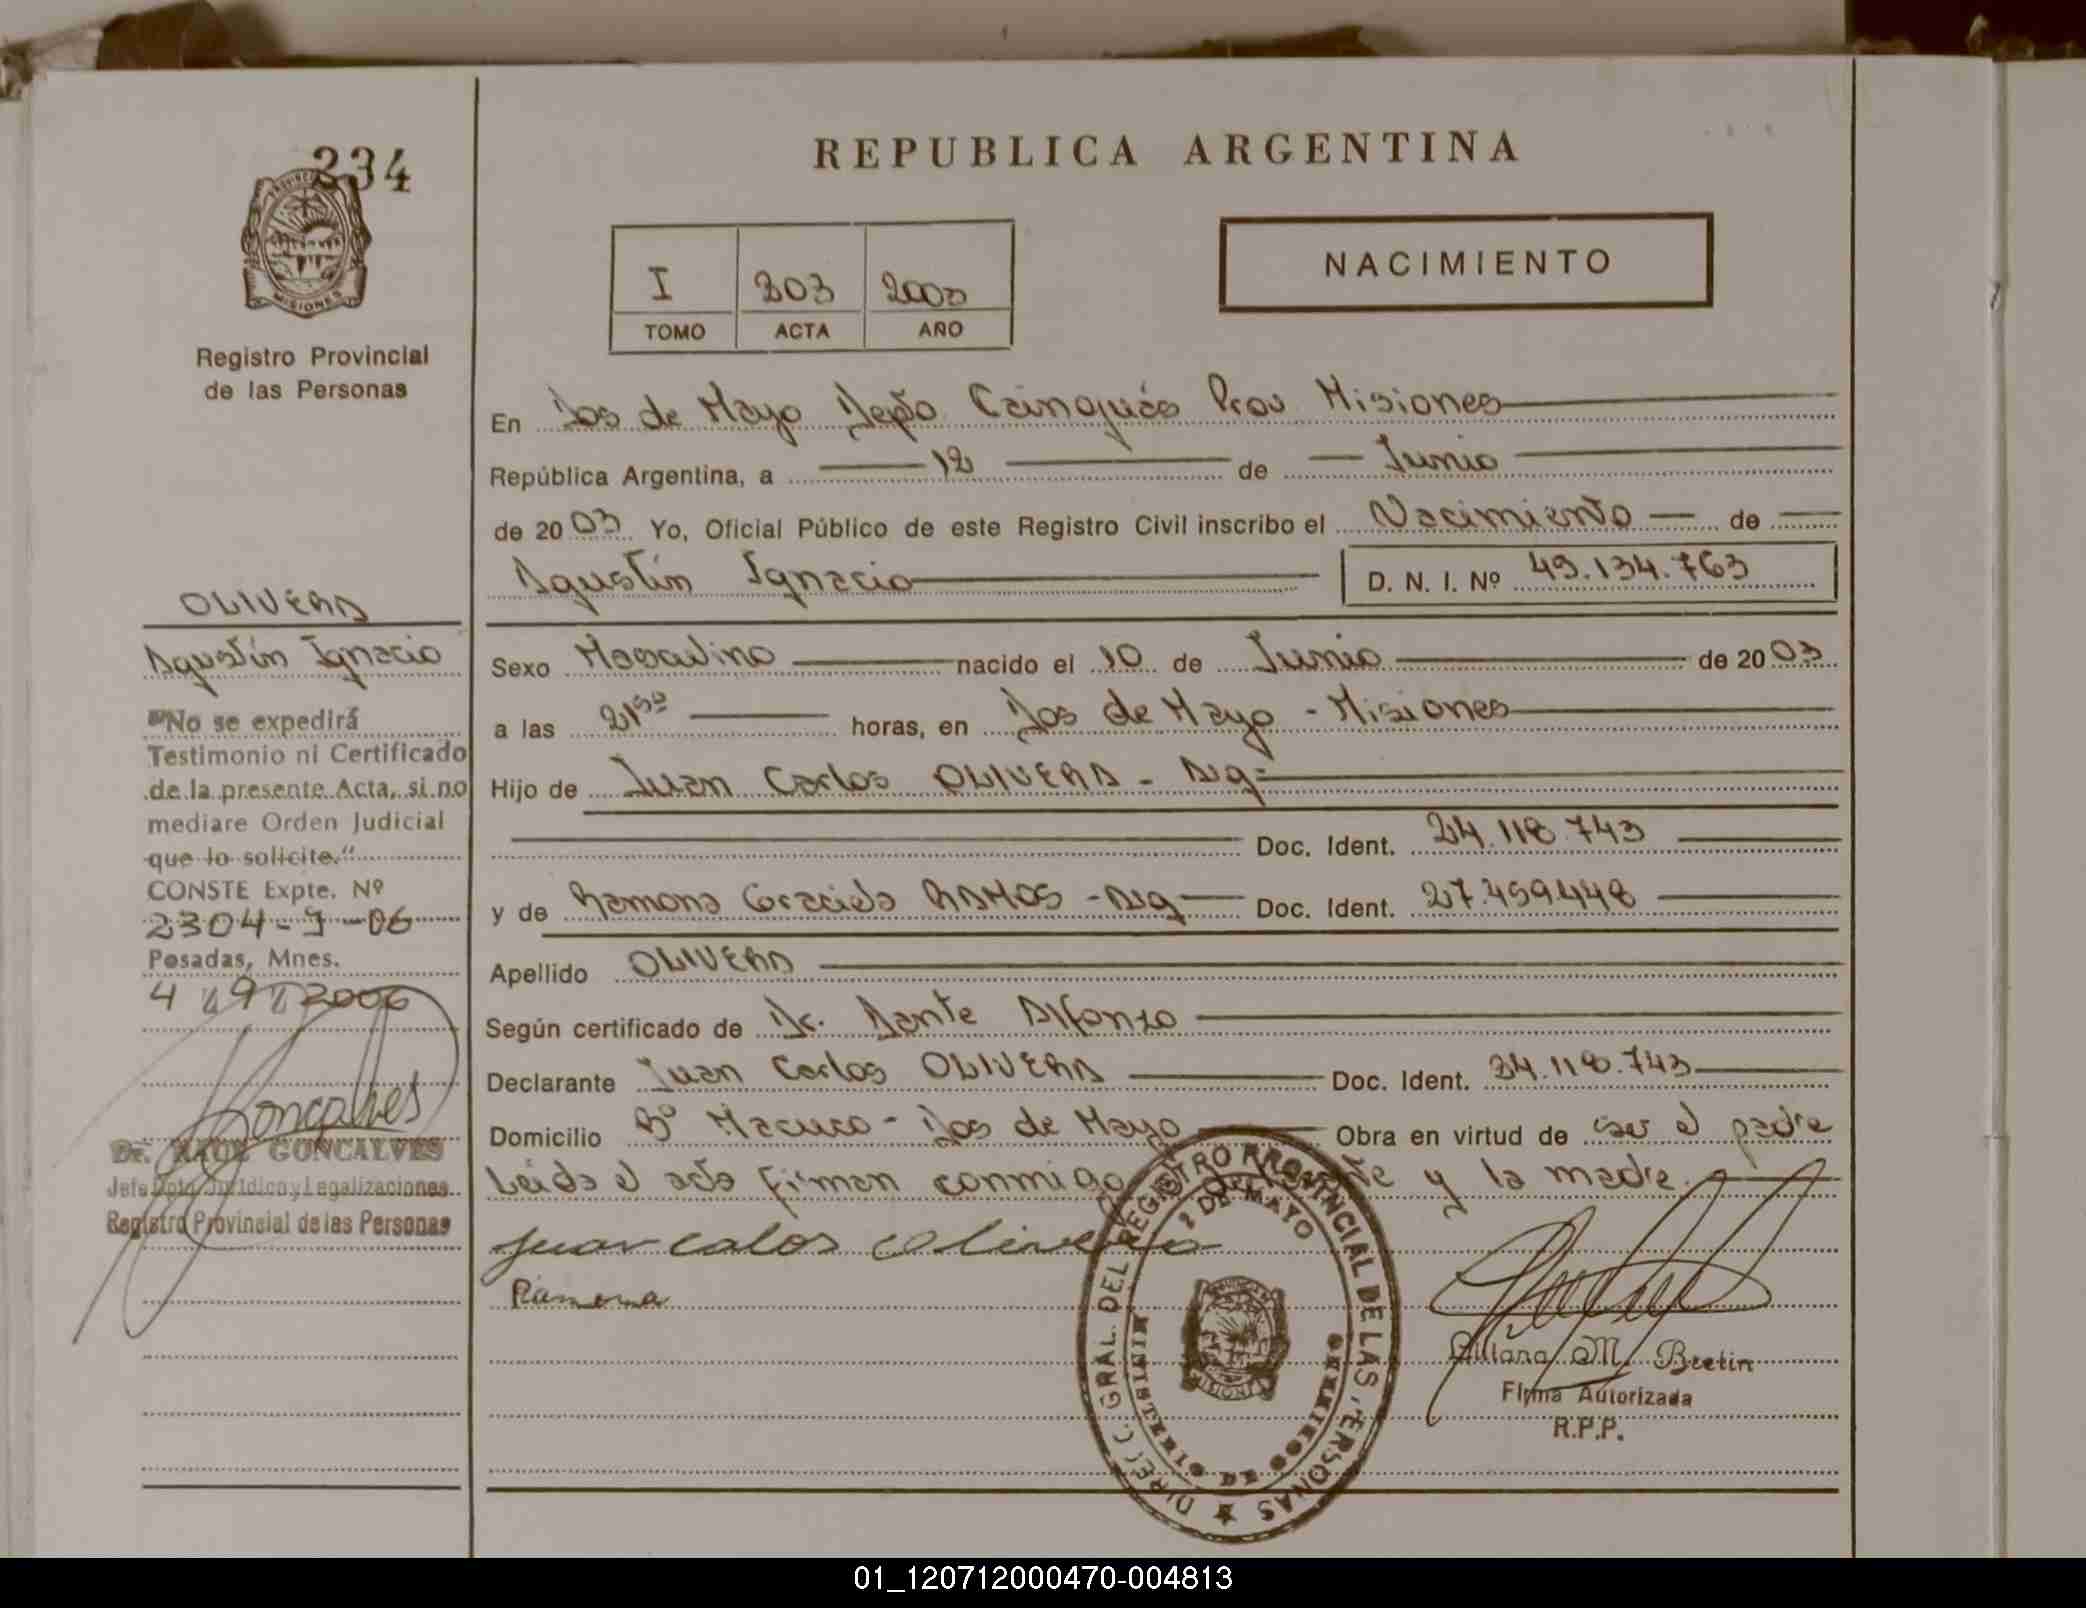 234
PROVINCIA
MISIONES
Registro Provincial
de las Personas
OLIVERA
Agustín Ignacio
"No se expedirá
Testimonio ni Certificado
de la presente Acta, si no
mediare Orden Judicial
que lo solicite."
CONSTE Expte. Nº
2304-J-06
Posadas, Mnes.
4 9 2006
Goncalves
Dr. RAUL GONCALVES
Jefe Dpto. Jurídico y Legalizaciones
Registro Provincial de las Personas
REPUBLICA ARGENTINA
I 303 2003
TOMO ACTA AÑO
NACIMIENTO
En Dos de Mayo Depto Cainguás Prov Misiones
República Argentina, a 12 de Junio
de 2003 Yo, Oficial Público de este Registro Civil inscribo el Nacimiento de
Agustín Ignacio D. N. I. Nº 49.134.763
Sexo Masculino nacido el 10 de Junio de 2003
a las 21 horas, en Dos de Mayo - Misiones
Hijo de Juan Carlos OLIVERA - Arg
Doc. Ident. 24.118.743
y de Ramona Graciela RAMOS - Arg Doc. Ident. 27.459.448
Apellido OLIVERA
Según certificado de Dr. Dante Alfonzo
Declarante Juan Carlos OLIVERA Doc. Ident. 24.118.743
Domicilio Bº Macuco - Dos de Mayo Obra en virtud de ser el padre
Leída el acta firman conmigo y la madre.
Juan calos olivera
Ramona
DIRECC. GRAL. DEL REGISTRO PROVINCIAL DE LAS PERSONAS
2 DE MAYO
MINISTERIO DE GOBIERNO
MISIONES
Liliana M. Bretin
Firma Autorizada
R.P.P.
01_120712000470-004813